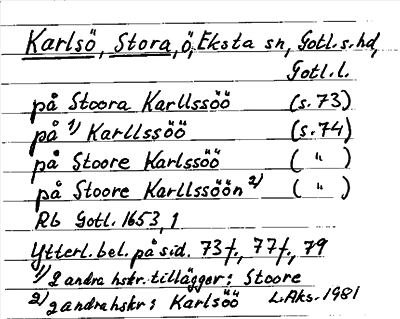 Karlsö, Stora, ö, Eksta sn, Gotl. s. hd,
Gotl. l.
på Stoora Karllssöö (s. 73)
på 1) Karllssöö (s. 74)
på Stoore Karlssöö ( " )
på Stoore Karllssöön 2) ( " )
Rb Gotl. 1653, 1
Ytterl. bel. på sid. 73f., 77f., 79
1) 2 andra hskr. tillägger: Stoore
2) 2 andra hskr: Karlsöö L. Aks. 1981